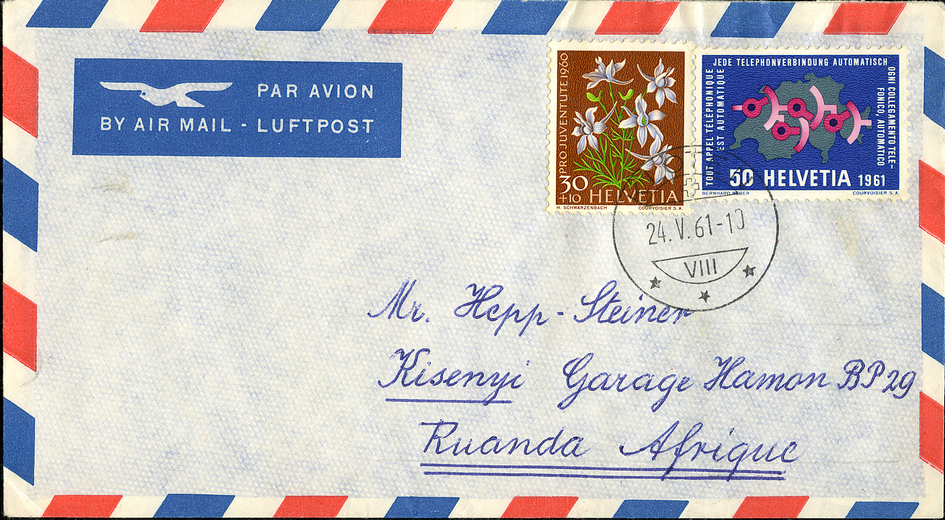 PAR AVION
BY AIR MAIL - LUFTPOST
PRO JUVENTUTE 1960
30
+10 HELVETIA
H. SCHWARZENBACH COURVOISIER S.A.
JEDE TELEPHONVERBINDUNG AUTOMATISCH
TOUT APPEL TÉLÉPHONIQUE
EST AUTOMATIQUE
OGNI COLLEGAMENTO TELE-
FONICO, AUTOMATICO
50 HELVETIA 1961
BERNHARD COURVOISIER S.A.
24.V.61-10
VIII
Mr. Hepp - Steiner
Kisenyi Garage Hamon BP 29
Ruanda Afrique